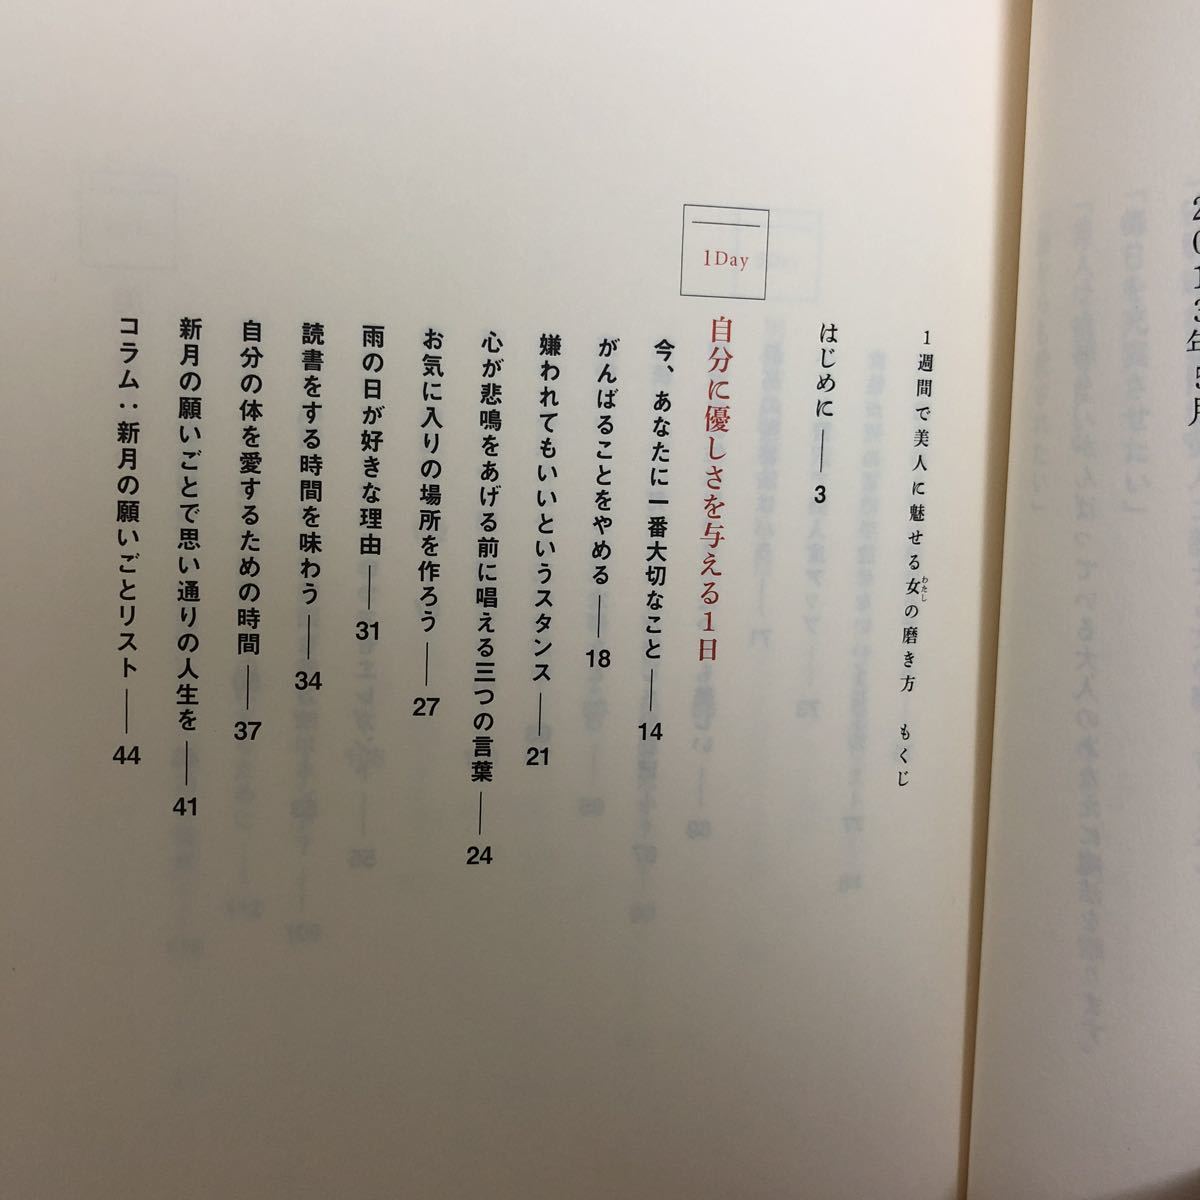 2013年5月
1週間で美人に魅せる女の磨き方　もくじ
わたし
はじめに――3
1Day
自分に優しさを与える1日
今、あなたに一番大切なこと――14
がんばることをやめる――18
嫌われてもいいというスタンス――21
心が悲鳴をあげる前に唱える三つの言葉――24
お気に入りの場所を作ろう――27
雨の日が好きな理由――31
読書をする時間を味わう――34
自分の体を愛するための時間――37
新月の願いごとで思い通りの人生を――41
コラム：新月の願いごとリスト――44